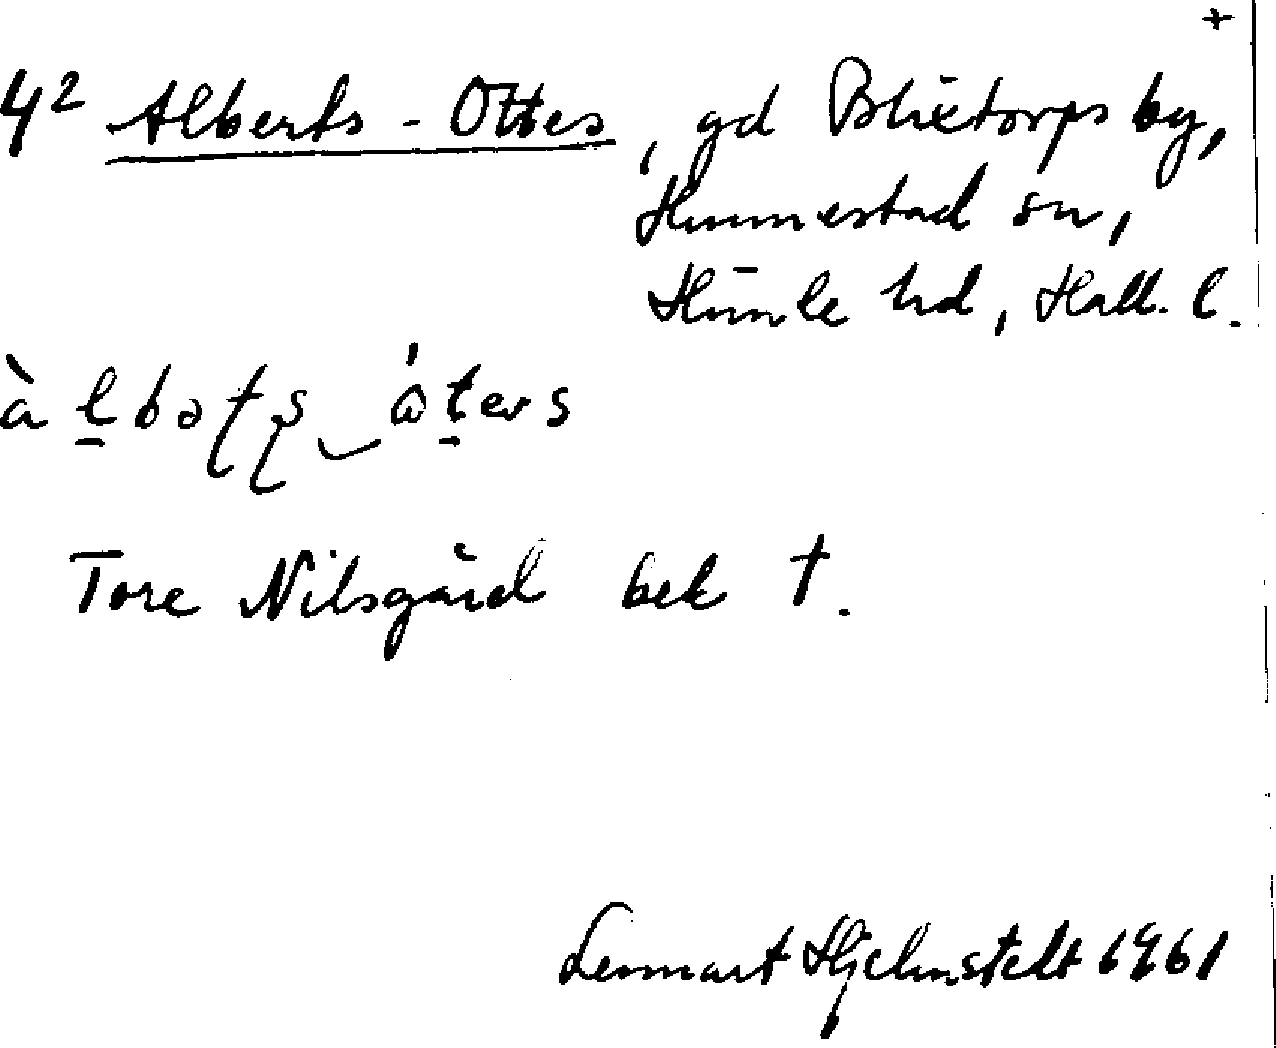 +
4² Alberts-Ottes, gd Blixtorps by,
Hunnestad sn,
Himle hd, Hall. l.
Tore Nilsgård bek †.
Lennart Hjelmstedt 1961